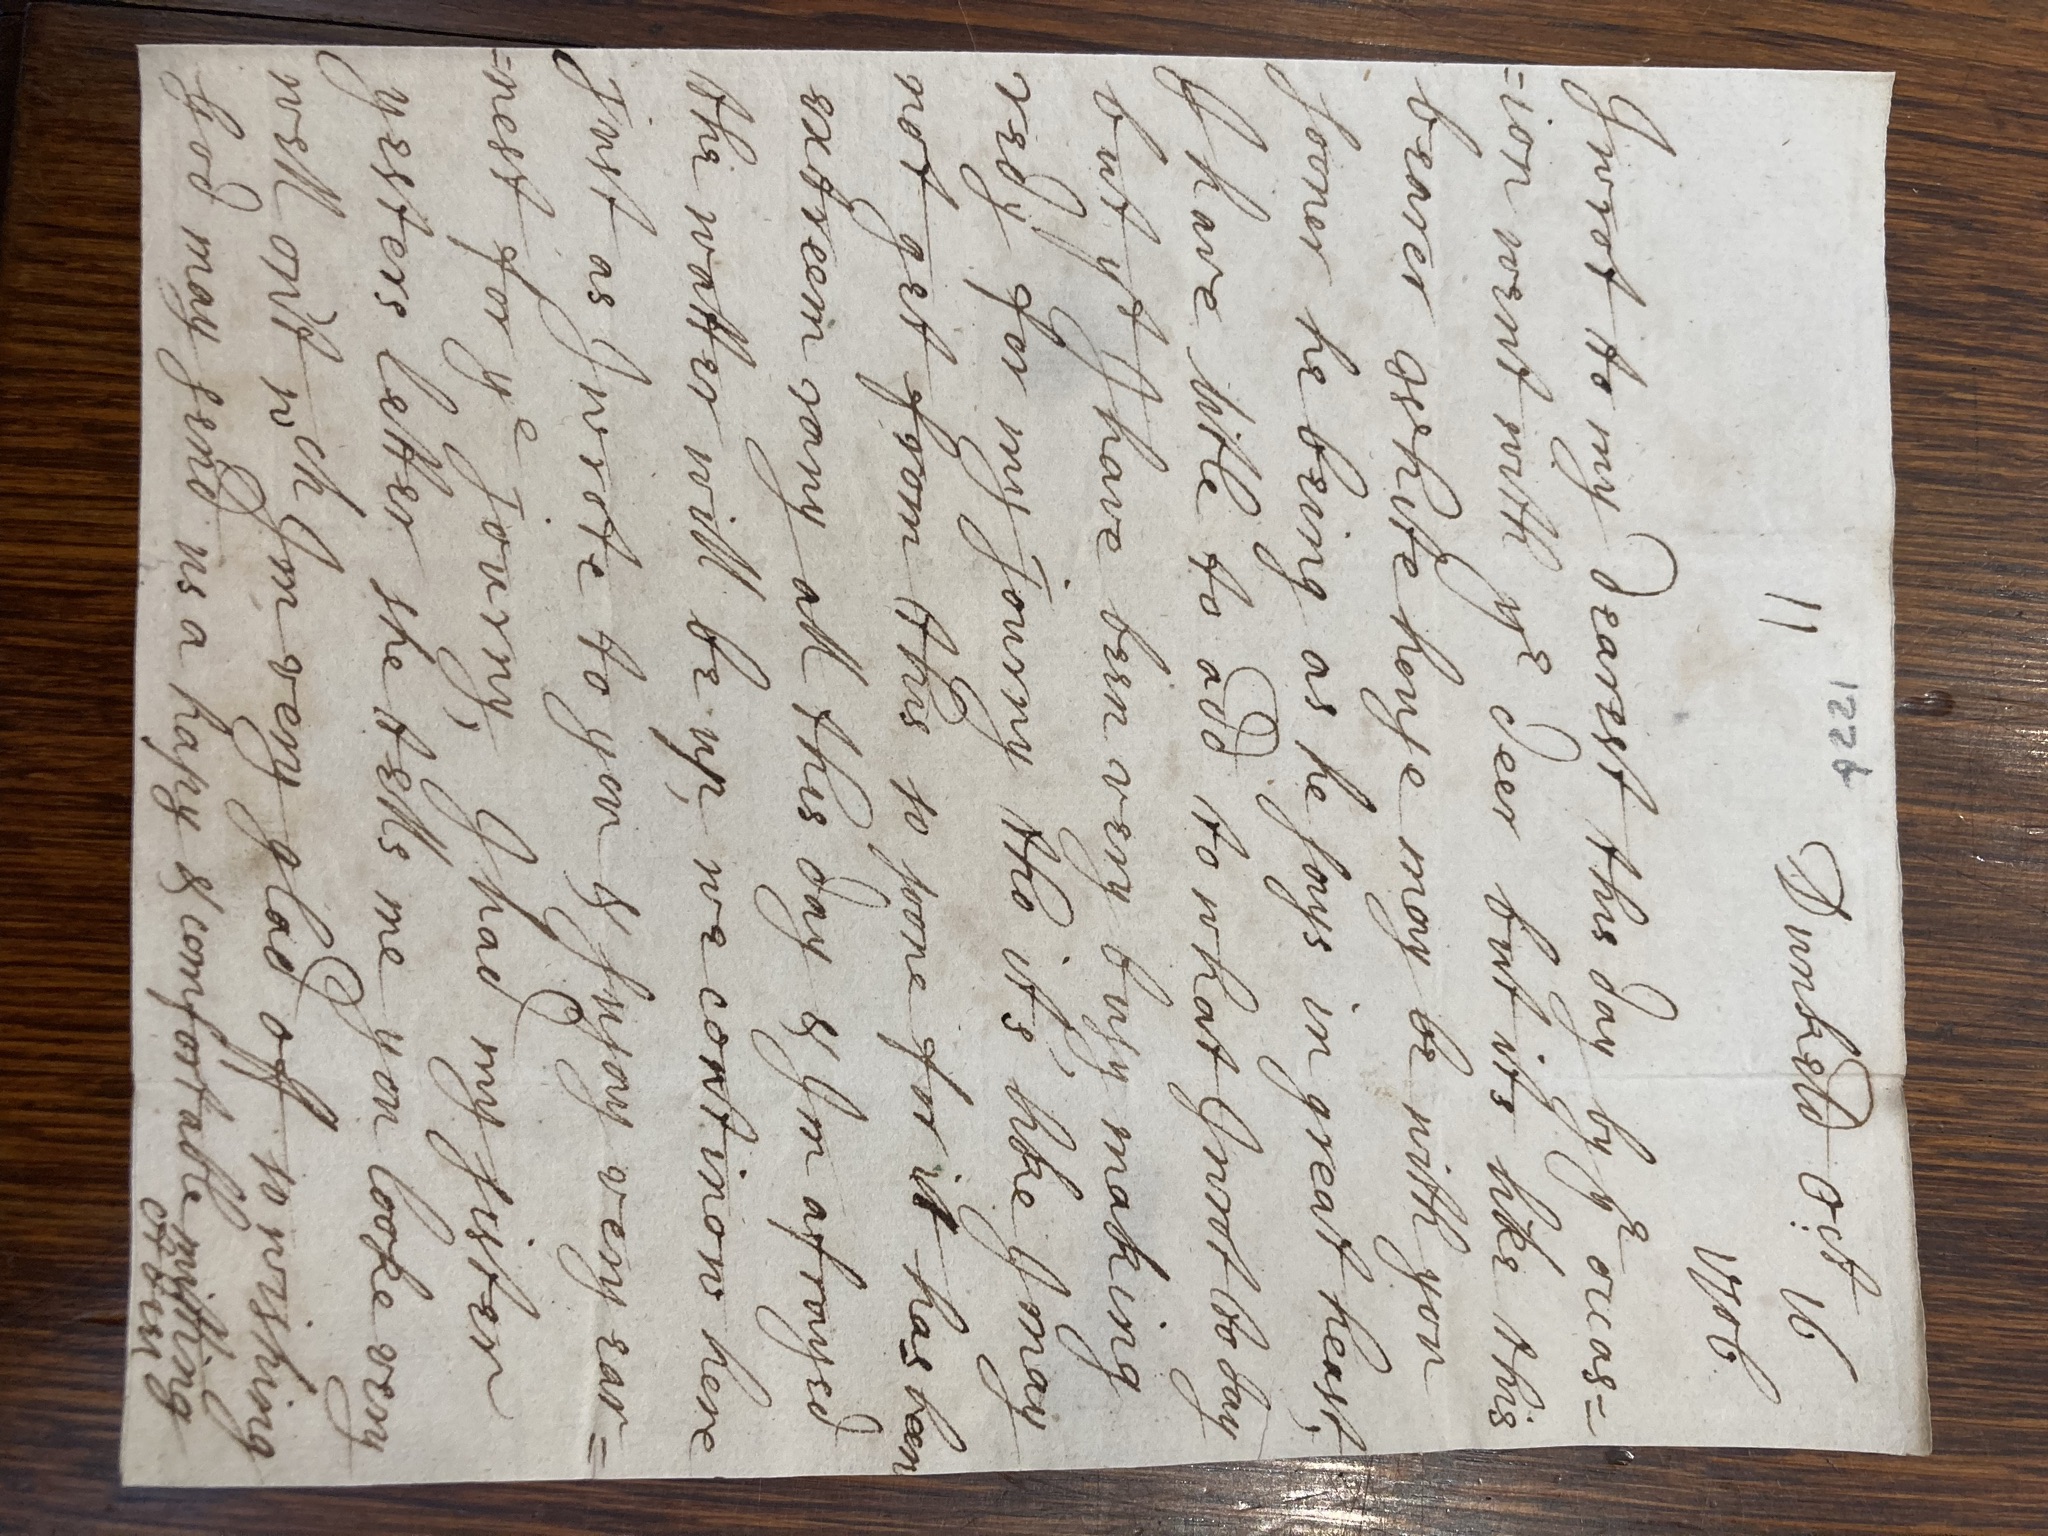 1226
11 Dunkeld Oct: 16
1706
I wrot to my dearest this day by ye occas=
=ion went with ye deer but its like this
bearer Whitehouse may be with you
sooner he being as he says in great heast,
I have litle to add to what I wrot to day
but yt I have been very busy making
redy for my journy tho it's like I may
not get from this so soone for it has been
extreem rany all this day & Im afrayed
the watter will be up, we continow here
just as I wrote to you & Susay very ear=
=nest for ye journy, I had my sister
yesters letter she tells me you looke very
well on't wch Im very glad off so wishing
God may send us a hapy & comfortable mitting
Adieu